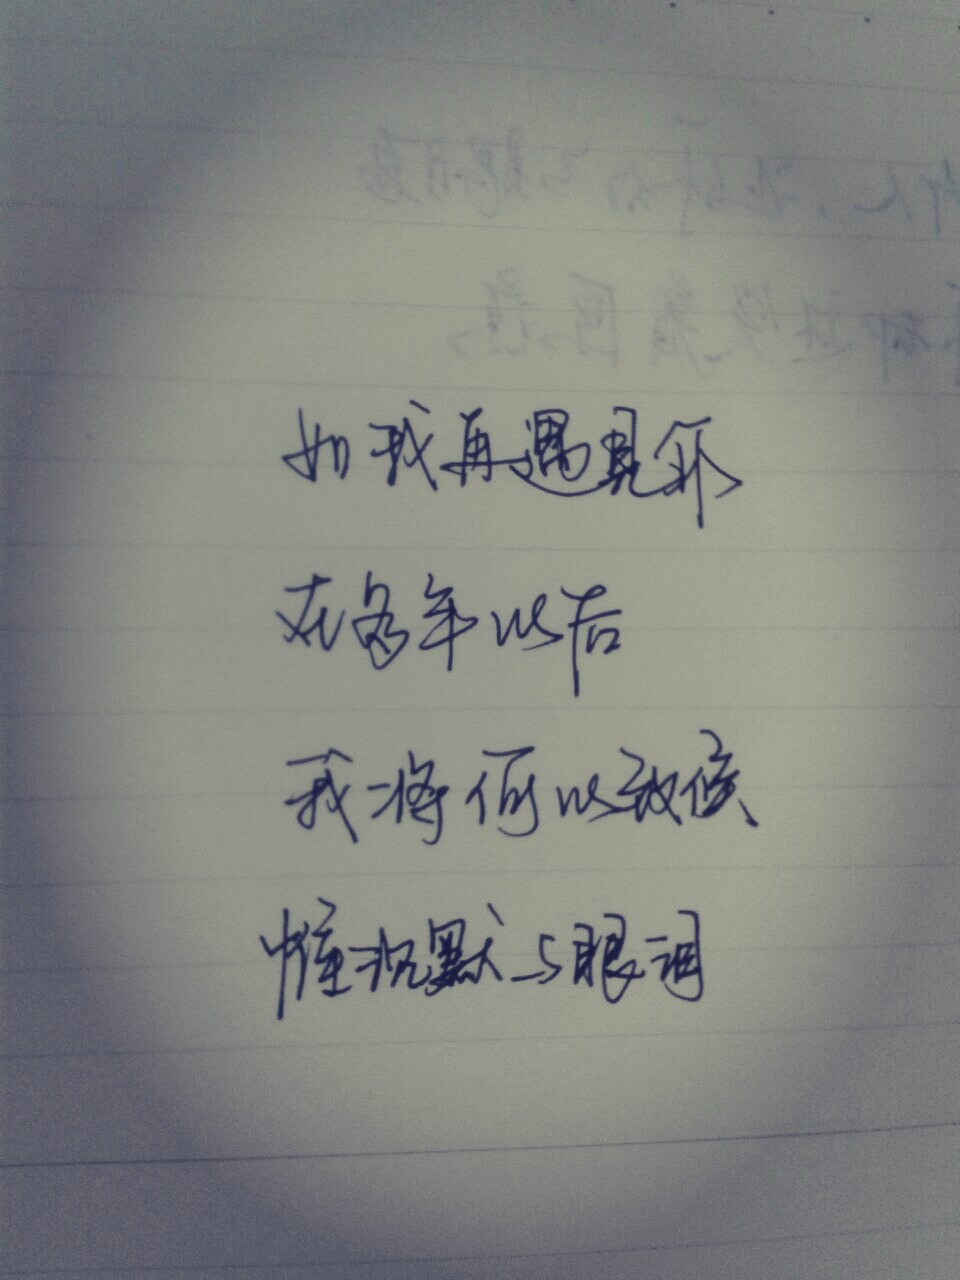 如我再遇見你
在多年以后
我将何以致候
惟沉默与眼泪